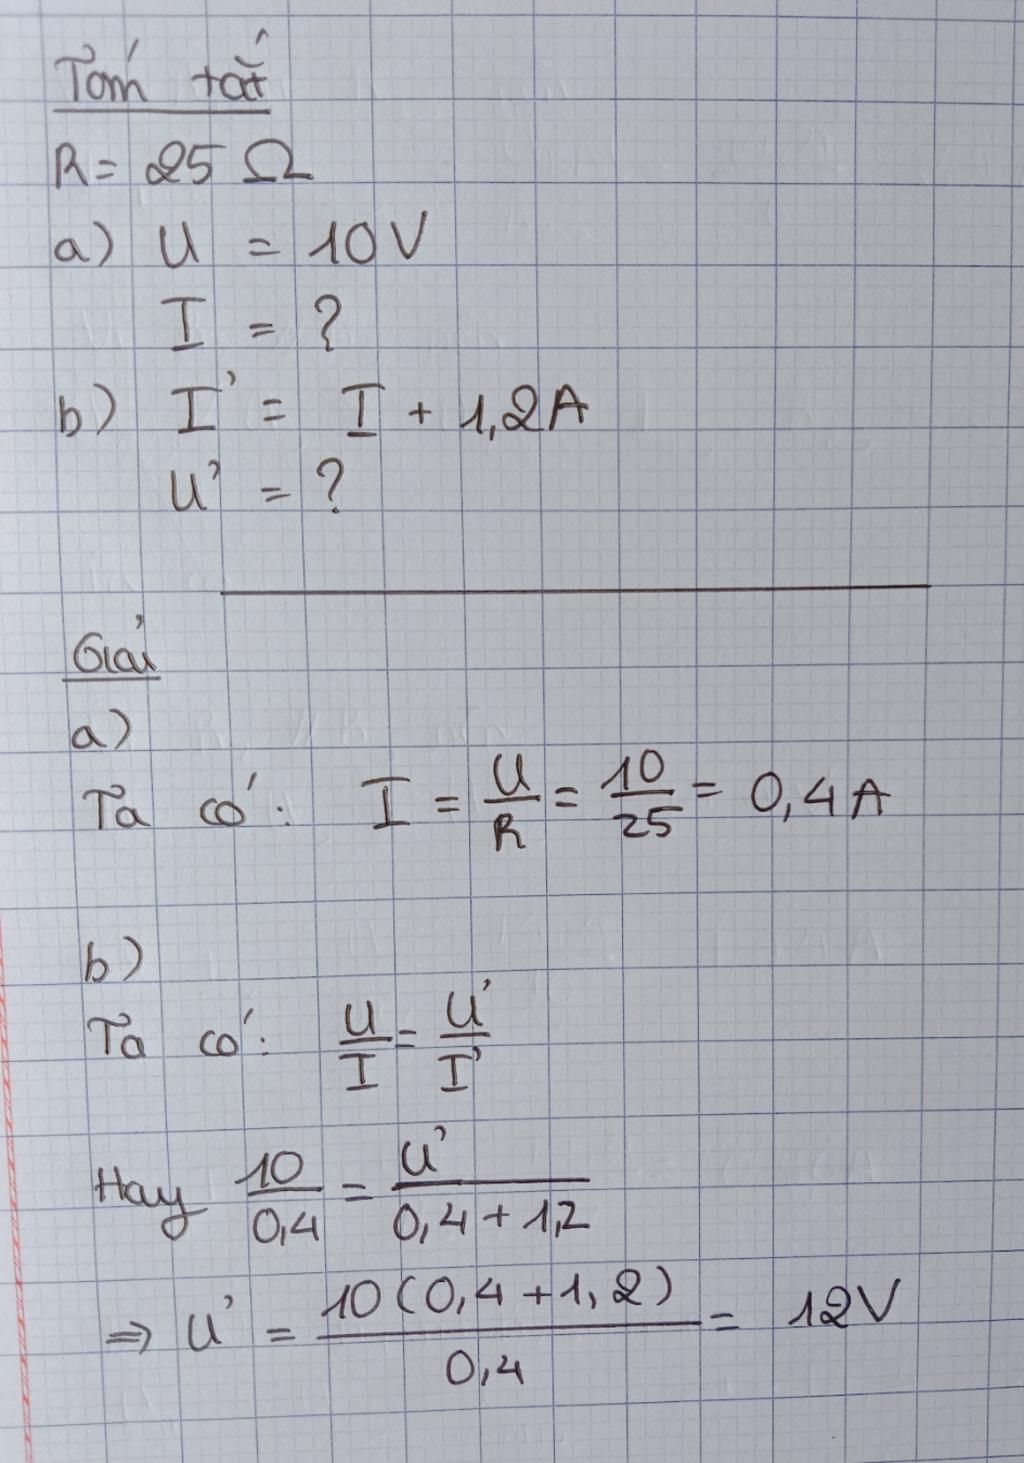 Tóm tắt
R = 25 Ω
a) U = 10V
I = ?
b) I' = I + 1,2A
U' = ?
Giải
a)
Ta có: I = U/R = 10/25 = 0,4A
b)
Ta có: U/I = U'/I'
Hay 10/0,4 = U'/0,4+1,2
⇒ U' = 10(0,4+1,2)/0,4 = 12V